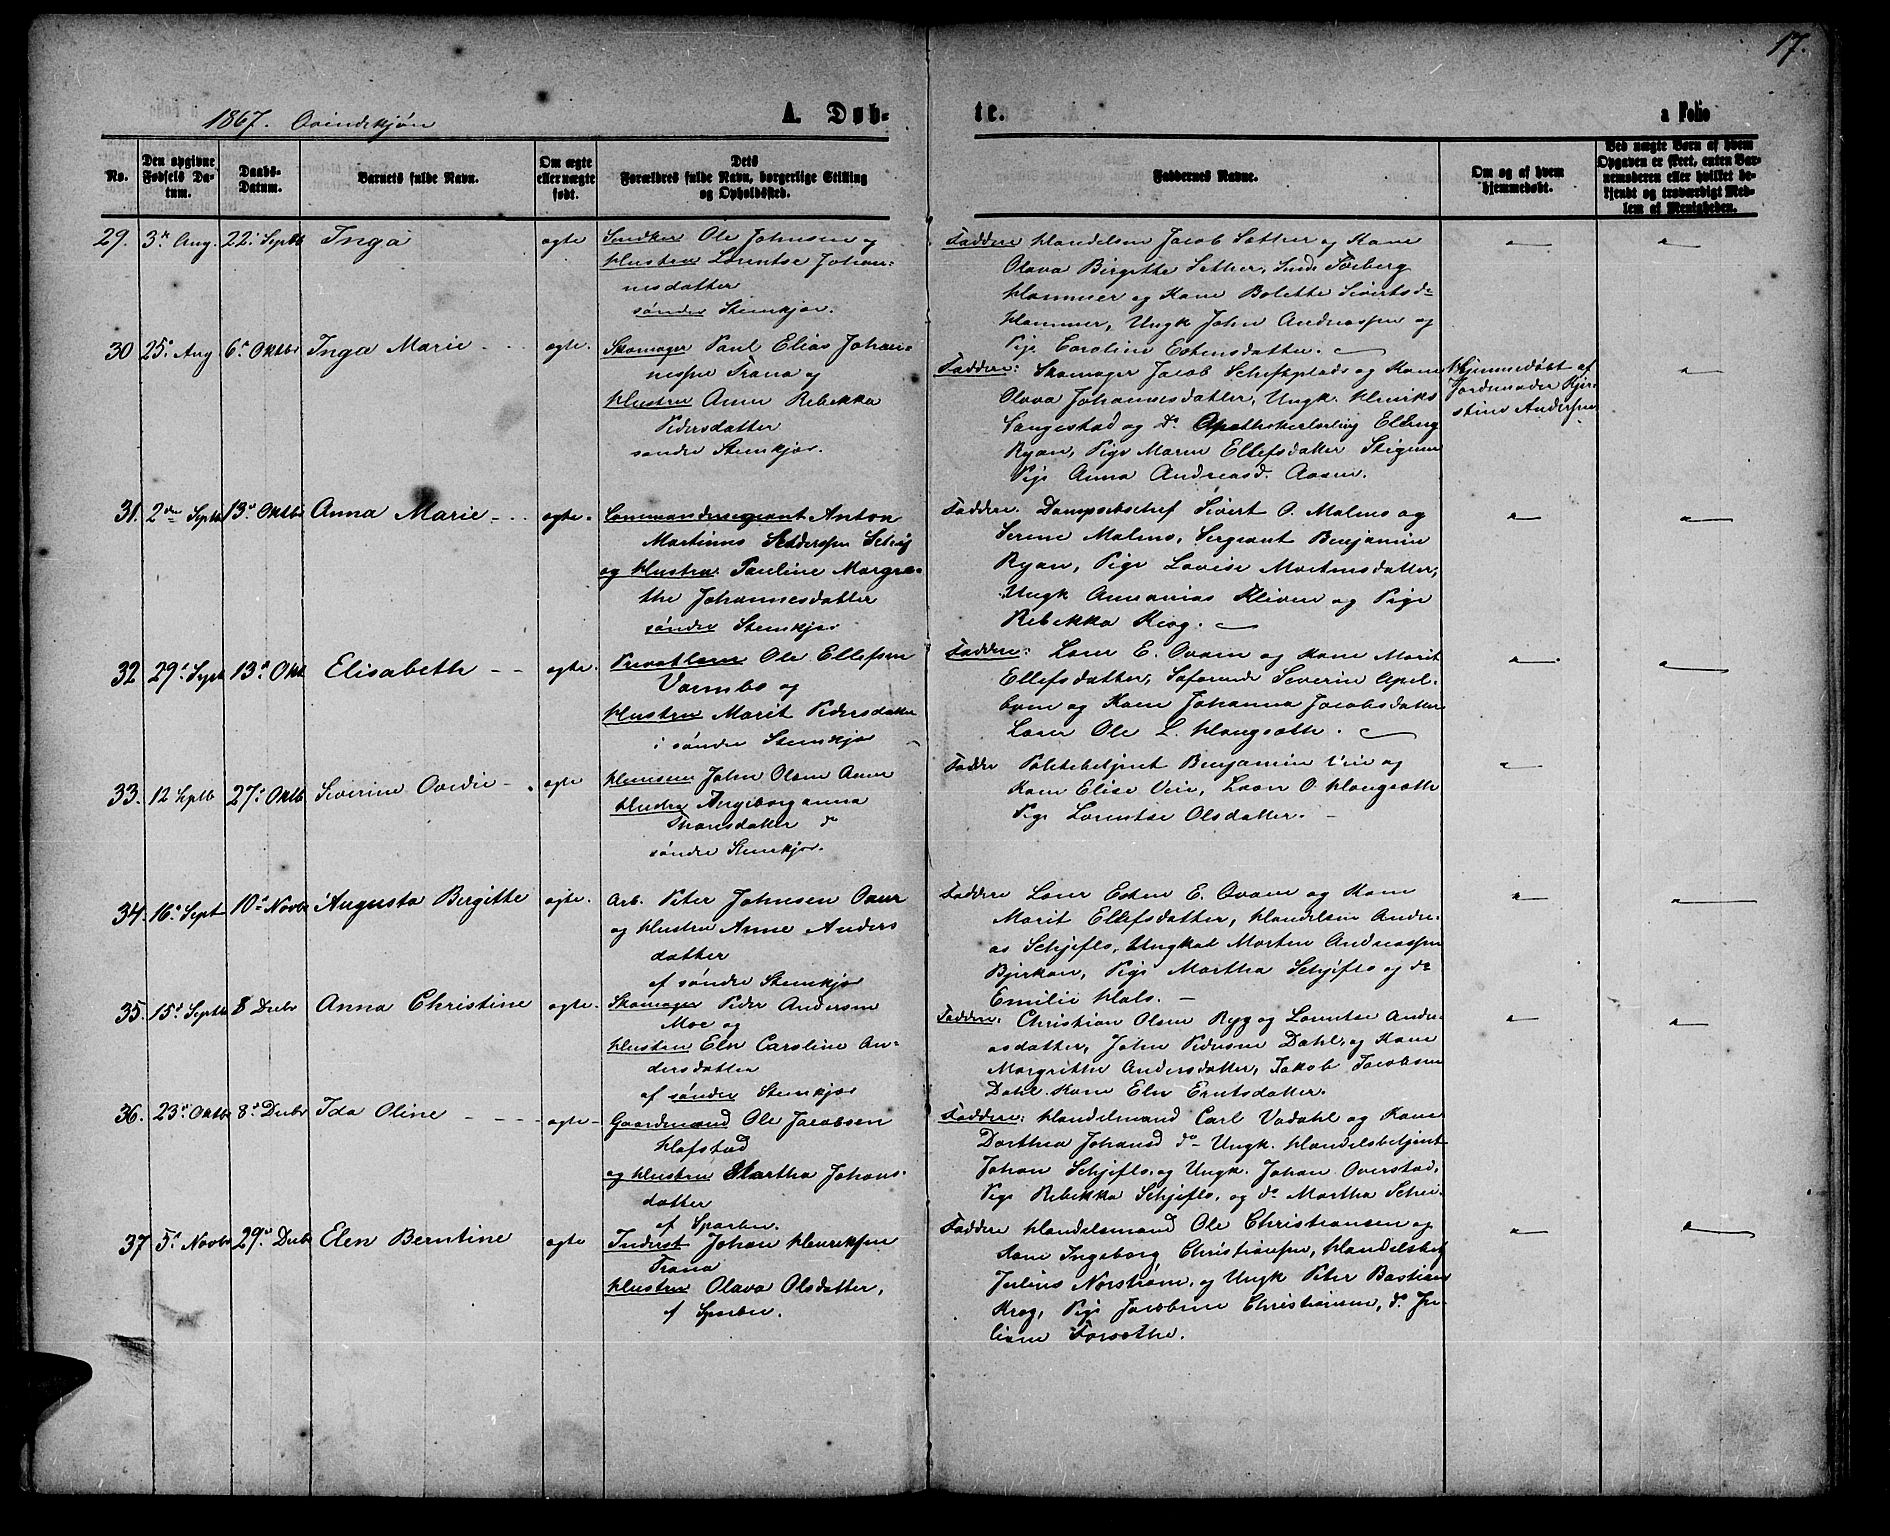 17.
1867. Qvindekjøn
A. Døb-
te.
a Folio
No.
Den opgivne Fødsels Datum.
Daabs-Datum.
Barnets fulde Navn.
Om ægte eller uægte født.
Dets Forældres fulde Navn, borgerlige Stilling og Opholdssted.
Faddernes Navne.
Om og af hvem hjemmedøbt.
Ved uægte Børn af hvem Opgaven er skeet, enten Barnemoderen eller hvilket bekjendt og troværdigt Medlem af Menigheden.
29. 3die Aug. 22. Septb Inga ægte
Ole Johnsen og
Hustru Lorentse Johan-
nesdatter
søndre Stenkjær.
Faddere Handelsm Jacob Sæther og Kone
Olava Birgitte Sæther, Torberg
Hammer og Kone Bolette Sivertsd
Hammer, Ungk John Andreassen og
Pige Caroline Estensdatter.
30 25. Aug 6. Oktbr Inga Marie ægte.
Skomager Paul Elias Johan-
nessen Trana og
Hustru Anna Rebekka
Pedersdatter
søndre Stenkjær.
Faddere: Skomager Jacob Schefteplads og Kone
Olava Johannesdatter, Ungk. Henrik
Langestad og do Apothekerlærling Elling
Ryan, Pige Maren Ellefsdatter
Pige Anna Andreasd. Aasen.
Hjemmedøbt af
Jordemoder Kjer-
stine Andersen
31. 2den Septb 13. Oktbr Anna Marie ægte.
Commandersergeant Anton
Martinus
og Hustru Pauline Margre-
the Johannesdatter
søndre Stenkjær
Faddere. Sivert O. Malmo og
Serene Malmo, Sergeant Benjamin
Ryan, Pige Lovise Mortensdatter,
Ungk Annanias Kliven og Pige
Rebekka Krog.
32 29. Septb 13. Okt Elisabeth ægte.
Ole Ellefsen
Værnbo og
Hustru Marit Pedersdatter
i søndre Stenkjær
Faddere: Lærer E. Qvam og Kone Marit
Ellefsdatter, Severin Apel-
bom og Kone Johanna Jacobsdatter
Lærer Ole L. Haugsæth.
33. 12 Septb 27. Oktb Severine Ovedie ægte
John Olsen
Hustru Ingeborganna
Thorsdatter
søndre Stenkjær.
Fadder Politibetjent Benjamin Veie og
Kone Elise Veie, O. Haugsæth
Pige Lorentse Olsdatter.
34. 16. Sept 10. Novbr Augusta Birgitte ægte.
Arb. Peter Johnsen
og Hustru Anne Anders
datter
af søndre Stenkjær
Faddere Lærer Esten E. Qvam og Kone
Marit Ellefsdatter, Handelsm Andre-
as Schjeflo, Ungkarl Morten Andreassen
Bjerkan, Pige Martha Schjeflo og do
Emilie Hals.
35. 15. Septb 8 Decbr Anna Christine ægte.
Skomager Peder Andersen
Moe og
Hustru Eln Caroline An-
dersdatter
af søndre Stenkjær
Faddere: Christian Olsen Ryg og Lorentse Andre-
asdatter, John Pedersen Dahl, og Kone
Margrethe Andersdatter, Jakob Jacobsen
Dahl. Kone Eln Erntsdatter.
36. 23. Oktbr 8. Decbr Ida Oline ægte
Gaardmand Ole Jacobsen
Hafstad
og Hustru Martha Johans-
datter
af Sparbu.
Faddere: Handelsmand Carl Vadahl og Kone
Dorthea Johansd do Ungk. Handelsbetjent
Johan Schjeflo, og Ungk. Johan Overstad,
Pige Rebekka Schjeflo, og do Martha Schei-
37 5. Novbr 29. Decbr Elen Berntine ægte
Inderst Johan Henriksen
Trana
Hustru Olava Olsdatter,
af Sparbu.
Faddere Handelsmand Ole Christiansen og
Kone Ingeborg Christiansen, Handelsbetj
Julius Norstrøm, og Ungk Peter Bastian
Krog, Pige Jacobine Christiansen, do Ju-
liane Forsethe.